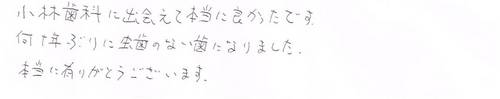 小林歯科に出会えて本当に良かったです.
何十年ぶりに虫歯のない歯になりました.
本当に有りがとうございます.